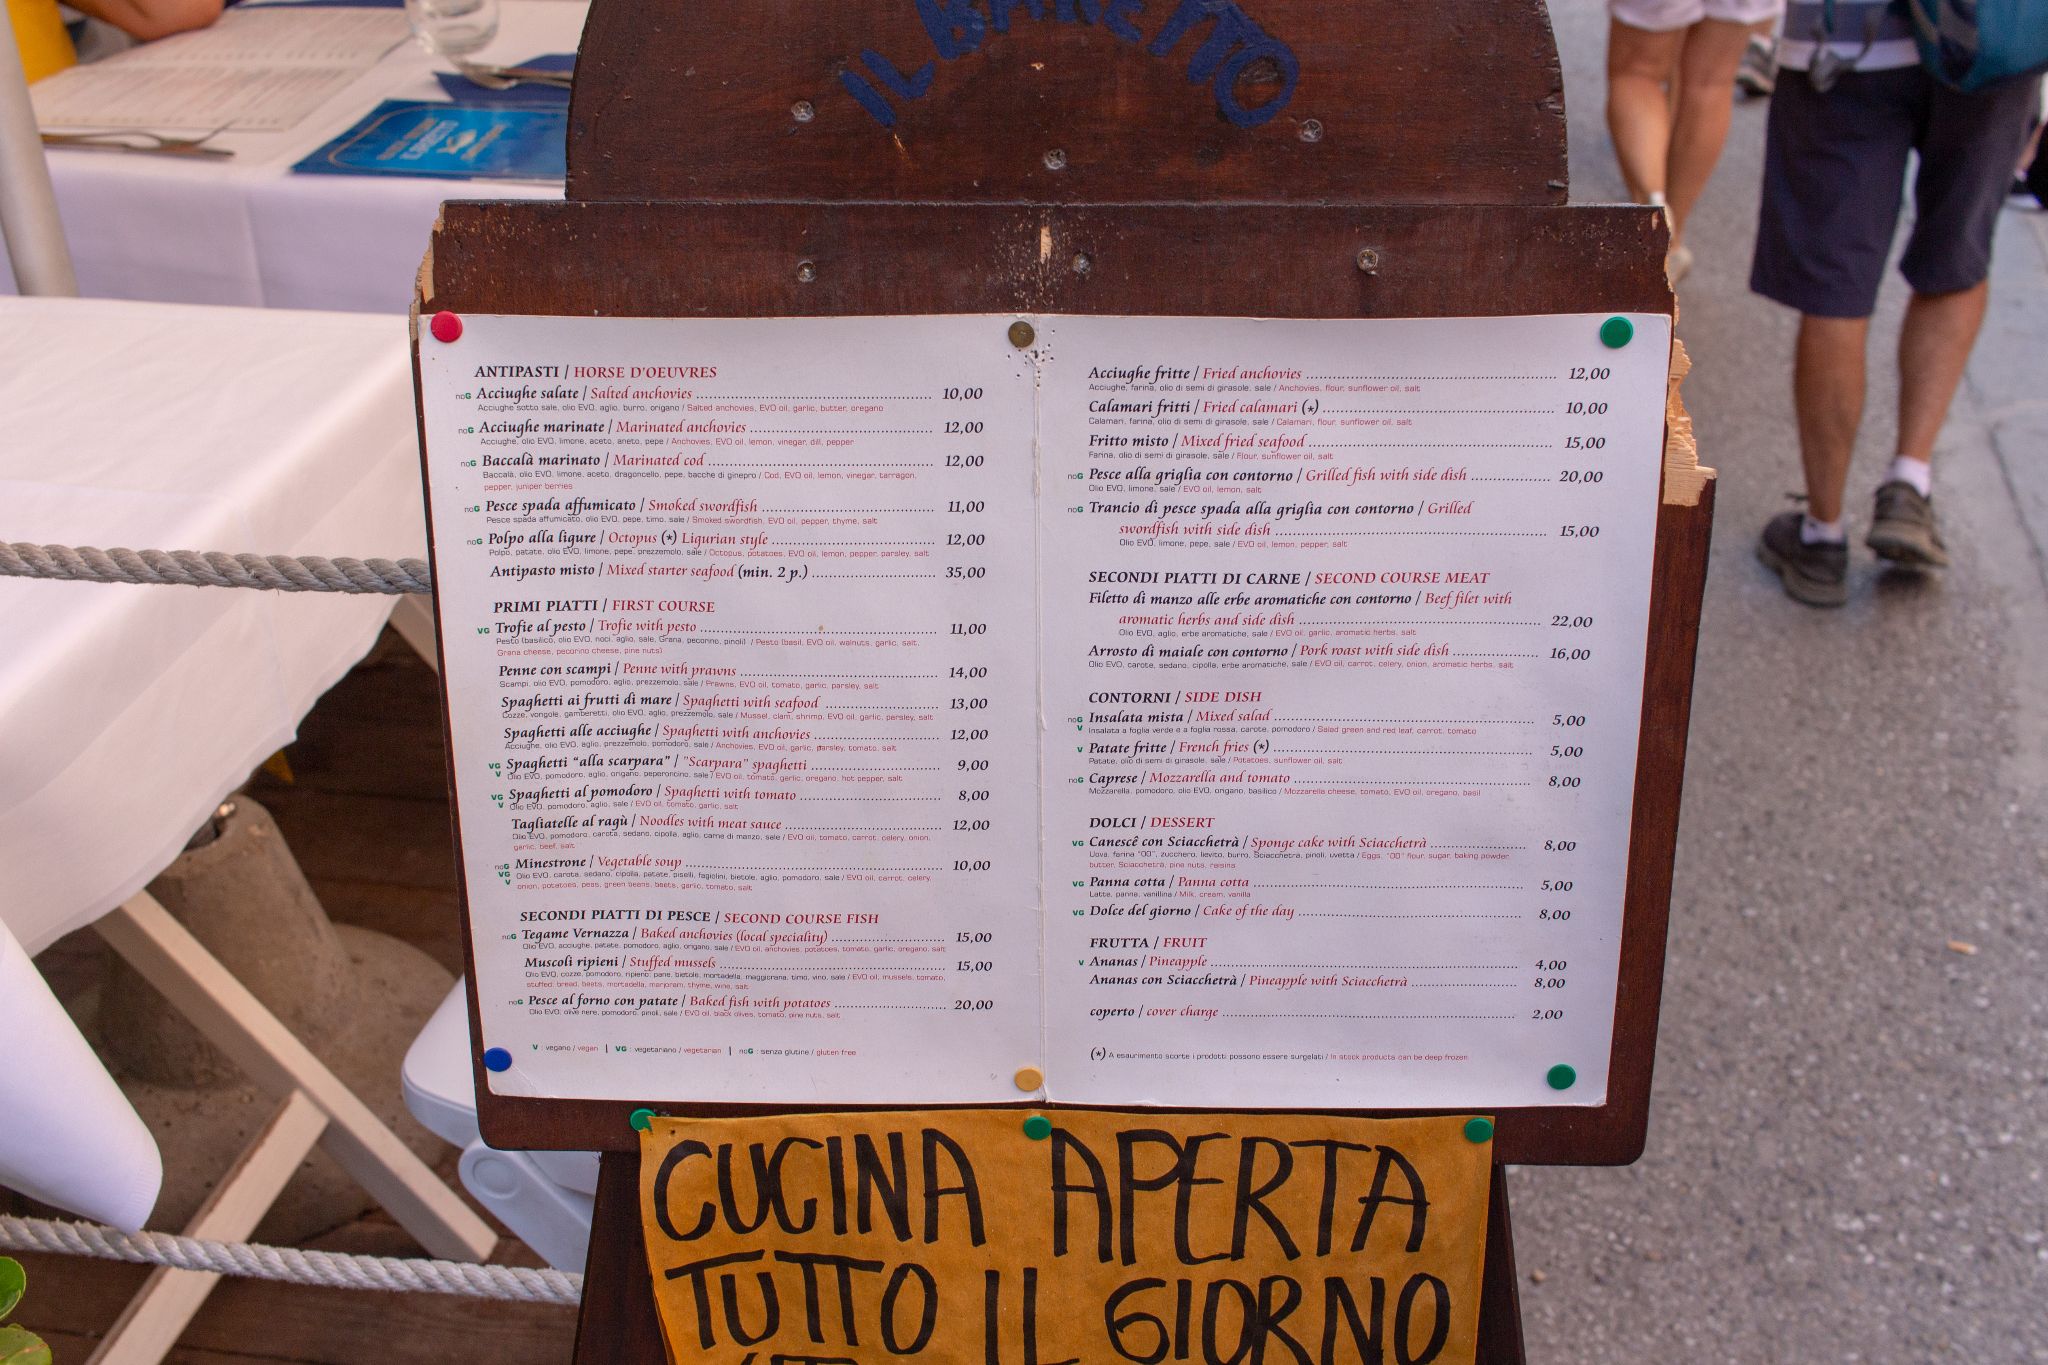 IL BARETTO
ANTIPASTI / HORSE D'OEUVRES
noG Acciughe salate / Salted anchovies 10,00
Acciughe sotto sale, olio EVO, aglio, burro, origano / Salted anchovies, EVO oil, garlic, butter, oregano
noG Acciughe marinate / Marinated anchovies 12,00
Acciughe, olio EVO, limone, aceto, aneto, pepe / Anchovies, EVO oil, lemon, vinegar, dill, pepper
noG Baccalà marinato / Marinated cod 12,00
Baccalà, olio EVO, limone, aceto, dragoncello, pepe, bacche di ginepro / Cod, EVO oil, lemon, vinegar, tarragon,
pepper, juniper berries
noG Pesce spada affumicato / Smoked swordfish 11,00
Pesce spada affumicato, olio EVO, pepe, timo, sale / Smoked swordfish, EVO oil, pepper, thyme, salt
noG Polpo alla ligure / Octopus (*) Ligurian style 12,00
Polpo, patate, olio EVO, limone, pepe, prezzemolo, sale / Octopus, potatoes, EVO oil, lemon, pepper, parsley, salt
Antipasto misto / Mixed starter seafood (min. 2 p.) 35,00
PRIMI PIATTI / FIRST COURSE
VG Trofie al pesto / Trofie with pesto 11,00
Pesto (basilico, olio EVO, noci, aglio, sale, Grana, pecorino, pinoli) / Pesto (basil, EVO oil, walnuts, garlic, salt,
Grana cheese, pecorino cheese, pine nuts)
Penne con scampi / Penne with prawns 14,00
Scampi, olio EVO, pomodoro, aglio, prezzemolo, sale / Prawns, EVO oil, tomato, garlic, parsley, salt
Spaghetti ai frutti di mare / Spaghetti with seafood 13,00
Cozze, vongole, gamberetti, olio EVO, aglio, prezzemolo, sale / Mussel, clam, shrimp, EVO oil, garlic, parsley, salt
Spaghetti alle acciughe / Spaghetti with anchovies 12,00
Acciughe, olio EVO, aglio, prezzemolo, pomodoro, sale / Anchovies, EVO oil, garlic, parsley, tomato, salt
VG V Spaghetti “alla scarpara” / "Scarpara" spaghetti 9,00
Olio EVO, pomodoro, aglio, origano, peperoncino, sale / EVO oil, tomato, garlic, oregano, hot pepper, salt
VG V Spaghetti al pomodoro / Spaghetti with tomato 8,00
Olio EVO, pomodoro, aglio, sale / EVO oil, tomato, garlic, salt
Tagliatelle al ragù / Noodles with meat sauce 12,00
Olio EVO, pomodoro, carota, sedano, cipolla, aglio, carne di manzo, sale / EVO oil, tomato, carrot, celery, onion,
garlic, beef, salt
noG VG V Minestrone / Vegetable soup 10,00
Olio EVO, carota, sedano, cipolla, patate, piselli, fagiolini, bietole, aglio, pomodoro, sale / EVO oil, carrot, celery,
onion, potatoes, peas, green beans, beets, garlic, tomato, salt
SECONDI PIATTI DI PESCE / SECOND COURSE FISH
noG Tegame Vernazza / Baked anchovies (local speciality) 15,00
Olio EVO, acciughe, patate, pomodoro, aglio, origano, sale / EVO oil, anchovies, potatoes, tomato, garlic, oregano, salt
Muscoli ripieni / Stuffed mussels 15,00
Olio EVO, cozze, pomodoro, ripieno: pane, bietole, mortadella, maggiorana, timo, vino, sale / EVO oil, mussels, tomato,
stuffed: bread, beets, mortadella, marjoram, thyme, wine, salt
noG Pesce al forno con patate / Baked fish with potatoes 20,00
Olio EVO, olive nere, pomodoro, pinoli, sale / EVO oil, black olives, tomato, pine nuts, salt
V : vegano / vegan | VG : vegetariano / vegetarian | noG : senza glutine / gluten free
Acciughe fritte / Fried anchovies 12,00
Acciughe, farina, olio di semi di girasole, sale / Anchovies, flour, sunflower oil, salt
Calamari fritti / Fried calamari (*) 10,00
Calamari, farina, olio di semi di girasole, sale / Calamari, flour, sunflower oil, salt
Fritto misto / Mixed fried seafood 15,00
Farina, olio di semi di girasole, sale / Flour, sunflower oil, salt
noG Pesce alla griglia con contorno / Grilled fish with side dish 20,00
Olio EVO, limone, sale / EVO oil, lemon, salt
noG Trancio di pesce spada alla griglia con contorno / Grilled
swordfish with side dish 15,00
Olio EVO, limone, pepe, sale / EVO oil, lemon, pepper, salt
SECONDI PIATTI DI CARNE / SECOND COURSE MEAT
Filetto di manzo alle erbe aromatiche con contorno / Beef filet with
aromatic herbs and side dish 22,00
Olio EVO, aglio, erbe aromatiche, sale / EVO oil, garlic, aromatic herbs, salt
Arrosto di maiale con contorno / Pork roast with side dish 16,00
Olio EVO, carote, sedano, cipolla, erbe aromatiche, sale / EVO oil, carrot, celery, onion, aromatic herbs, salt
CONTORNI / SIDE DISH
noG V Insalata mista / Mixed salad 5,00
Insalata a foglia verde e a foglia rossa, carote, pomodoro / Salad green and red leaf, carrot, tomato
V Patate fritte / French fries (*) 5,00
Patate, olio di semi di girasole, sale / Potatoes, sunflower oil, salt
noG Caprese / Mozzarella and tomato 8,00
Mozzarella, pomodoro, olio EVO, origano, basilico / Mozzarella cheese, tomato, EVO oil, oregano, basil
DOLCI / DESSERT
VG Canescê con Sciacchetrà / Sponge cake with Sciacchetrà 8,00
Uova, farina "00", zucchero, lievito, burro, Sciacchetrà, pinoli, uvetta / Eggs, "00" flour, sugar, baking powder,
butter, Sciacchetrà, pine nuts, raisins
VG Panna cotta / Panna cotta 5,00
Latte, panna, vanillina / Milk, cream, vanilla
VG Dolce del giorno / Cake of the day 8,00
FRUTTA / FRUIT
V Ananas / Pineapple 4,00
Ananas con Sciacchetrà / Pineapple with Sciacchetrà 8,00
coperto / cover charge 2,00
(*) A esaurimento scorte i prodotti possono essere surgelati / In stock products can be deep frozen
CUCINA APERTA
TUTTO IL GIORNO